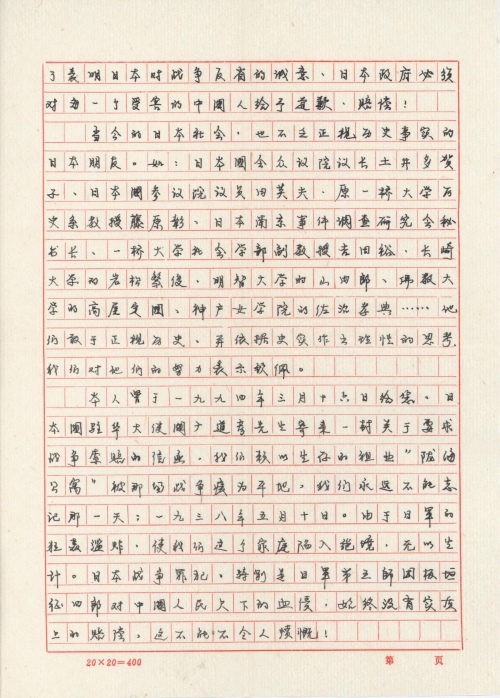 了表明日本对战争反省的诚意、日本政府必须
对每一个受害的中国人给予道歉、赔偿!
当今的日本社会,也不乏正视历史事实的
日本朋友。如:日本国会众议院议长土井多贺
子、日本国参议院议员田英夫、原一桥大学历
史系教授藤原彰、日本南京事件调查研究会秘
书长、一桥大学社会学部副教授吉田裕、长崎
大学的岩松繁俊、明智大学的山田朗、佛教大
学的高屋定国、神户女学院的佐治孝典……他
们敢于正视历史、并依据史实作之理性的思考,
我们对他们的努力表示钦佩。
本人曾于一九九四年三月十六日给您、日
本国驻华大使国广道彦先生寄来一封关于要求
战争索赔的信函。我们赖以生存的祖业“
公寓”被那场战争夷为平地,我们永远不能忘
记那一天:一九三八年五月十日。由于日军的
狂轰滥炸、使我们这个家庭陷入绝境、无以生
计。日本战争罪犯、特别是日军第五师团板垣
征四郎对中国人民欠下的血债、始终没有实质
上的赔偿,这不能不令人愤慨!
20×20=400
第 页